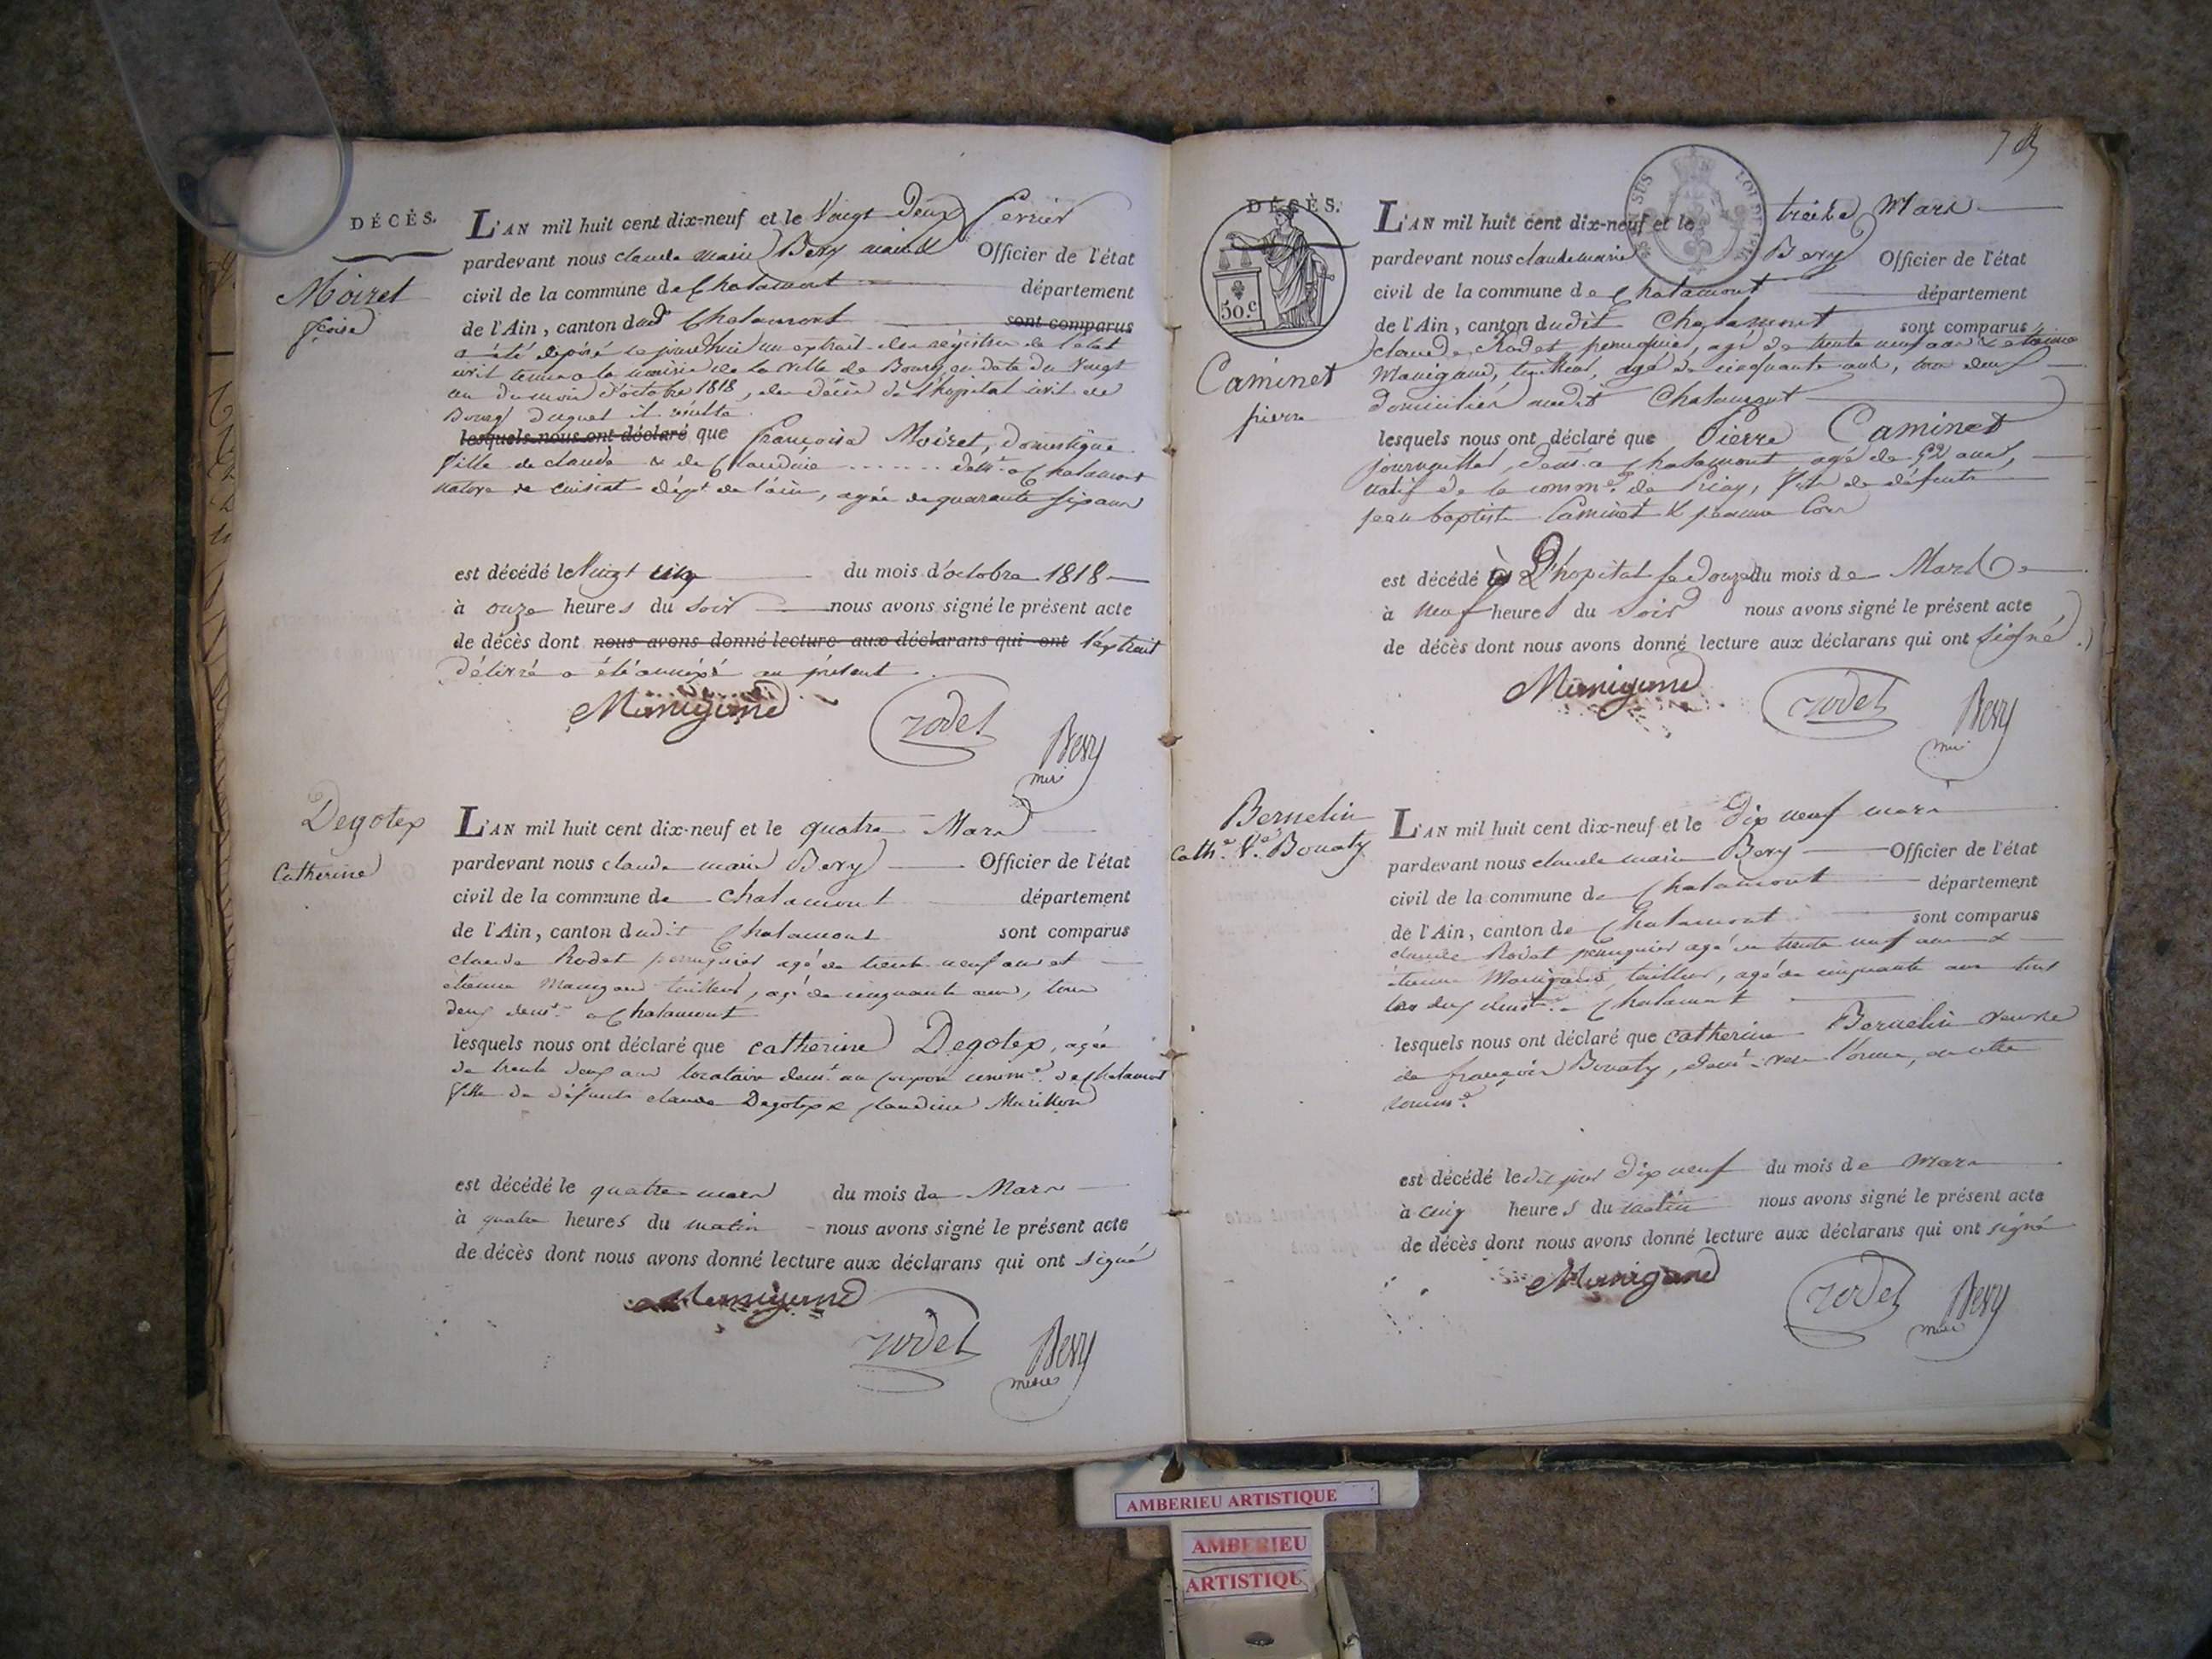 DÉCÈS.
Moiret
fçoise
L'AN mil huit cent dix-neuf et le Vingt Deux fevrier
pardevant nous claude marie Bery maire Officier de l'état
civil de la commune de Chalamont département
de l'Ain, canton dud.t Chalamont sont comparus
a été déposé ce jourd'hui un extrait des régistres de l'état
civil tenus a la mairie de la ville de Bourg en date du Vingt
un du mois d'octobre 1818, des décès de l'hopital civil de
Bourg duquel il résulte
lesquels nous ont déclaré que françoise Moiret, domestique
fille de claude & de Claudine ....... dem.t a Chalamont
native de cuisiat dép.t de l'ain, agée de quarante six ans
est décédé le Vingt du mois d'octobre 1818
à onze heures du soir nous avons signé le présent acte
de décès dont nous avons donné lecture aux déclarans qui ont l'extrait
délivré a été annéxé au présent
Manigand
rodet
Bery
Degotex
Catherine
L'AN mil huit cent dix-neuf et le quatre Mars
pardevant nous claude marie Bery Officier de l'état
civil de la commune de chalamont département
de l'Ain, canton dudit Chalamont sont comparus
claude Rodet perruquier agé de trente neuf ans et
étienne Manigand tailleur, agé de cinquante ans, tous
deux dem.t a Chalamont
lesquels nous ont déclaré que catherine Degotex, agée
de trente deux ans locataire dem.t au comm.e de Chalamont
fille de défunts claude Degotex & claudine
est décédé le quatre mars du mois de Mars
à quatre heures du matin nous avons signé le présent acte
de décès dont nous avons donné lecture aux déclarans qui ont signé
Manigand
rodet
Bery
maire
DÉCÈS.
50.c
Caminet
pierre
L'AN mil huit cent dix-neuf et le treize Mars
pardevant nous claude marie Bery Officier de l'état
civil de la commune de Chalamont département
de l'Ain, canton dudit Chalamont sont comparus
claude Rodet perruquier, agé de trente neuf ans & étienne
Manigand, tailleur, agé de cinquante ans, tous deux
domiciliés audit Chalamont
lesquels nous ont déclaré que Pierre Caminet
journaillier, dem.t a Chalamont agé de 52 ans,
natif de la comm.e de priay, fils de défunts
jean baptiste Caminet & jeanne
est décédé à L'hopital le douze du mois de Mars
à neuf heures du soir nous avons signé le présent acte
de décès dont nous avons donné lecture aux déclarans qui ont signé.
Manigand
rodet
Bery
Bernelin
Cath.e V.e Bouaty
L'AN mil huit cent dix-neuf et le dix neuf mars
pardevant nous claude marie Bery Officier de l'état
civil de la commune de Chalamont département
de l'Ain, canton de Chalamont sont comparus
claude Rodet perruquier agé de trente neuf ans &
étienne Manigand tailleur, agé de cinquante ans tous
les deux dem.t a Chalamont
lesquels nous ont déclaré que catherine Bernelin veuve
de françois Bouaty, dem.t en cette
comm.e
est décédé le dit jour dix neuf du mois de mars
à cinq heures du matin nous avons signé le présent acte
de décès dont nous avons donné lecture aux déclarans qui ont signé
Manigand
rodet
Bery
maire
AMBERIEU ARTISTIQUE
AMBERIEU
ARTISTIQU